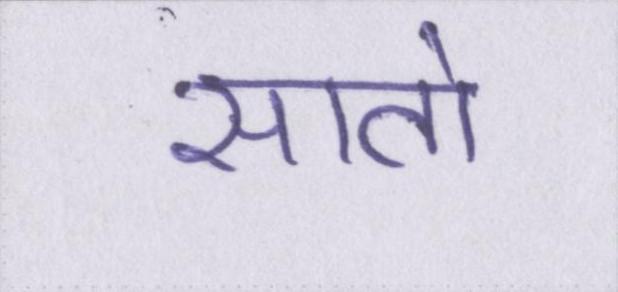 सातो